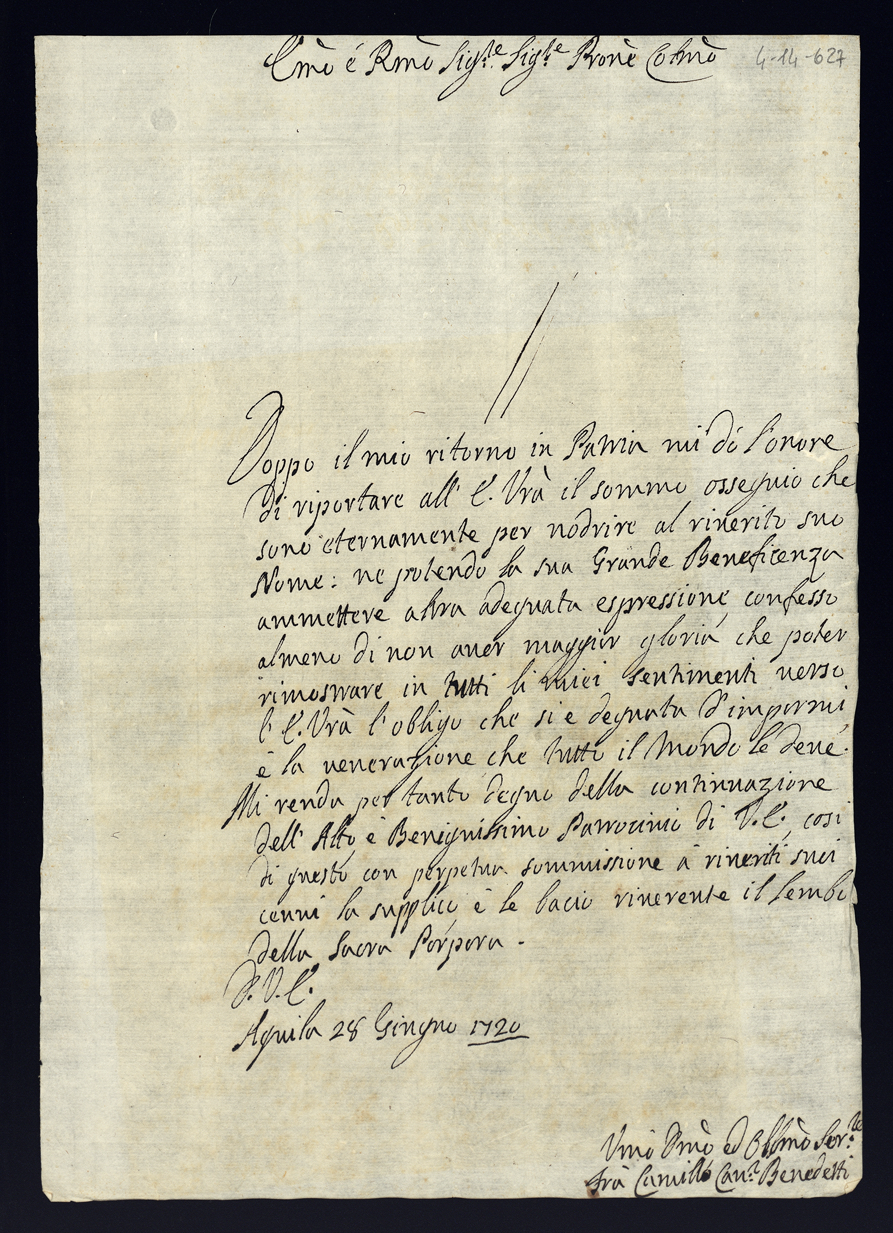 Emo é Rmo Sigre Sigre Prone Colmo
4-14-627
Doppo il mio ritorno in Patria mi dò l'onore
di riportare all' E. Vrà il sommo ossequio che
sono eternamente per nodrire al riverito suo
Nome: ne potendo la sua Grande Beneficenza
ammettere altra adequata espressione, confesso
almeno di non aver maggior gloria, che poter
rimostrare in tutti li miei sentimenti verso
l'E. Vrà l'obligo che si è degnata d'impormi,
è la venerazione che tutto il Mondo le deve.
Mi renda per tanto degno della continuazione
dell' Alto, è Benignissimo Patrocinio di V.E., così
di questo con perpetua sommissione à riveriti suoi
cenni la supplico, è le bacio riverente il lembo
della Sacra Porpora.
D. V. E.
Aquila 28 Giugno 1720
Vmo Dmo ed Obbmo Serre
frà Camillo Cavr Benedetti